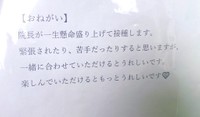 【おねがい】
院長が一生懸命盛り上げて接種します。
緊張されたり、苦手だったりすると思いますが、
一緒に合わせていただけるとうれしいです。
楽しんでいただけるともっとうれしいです♥